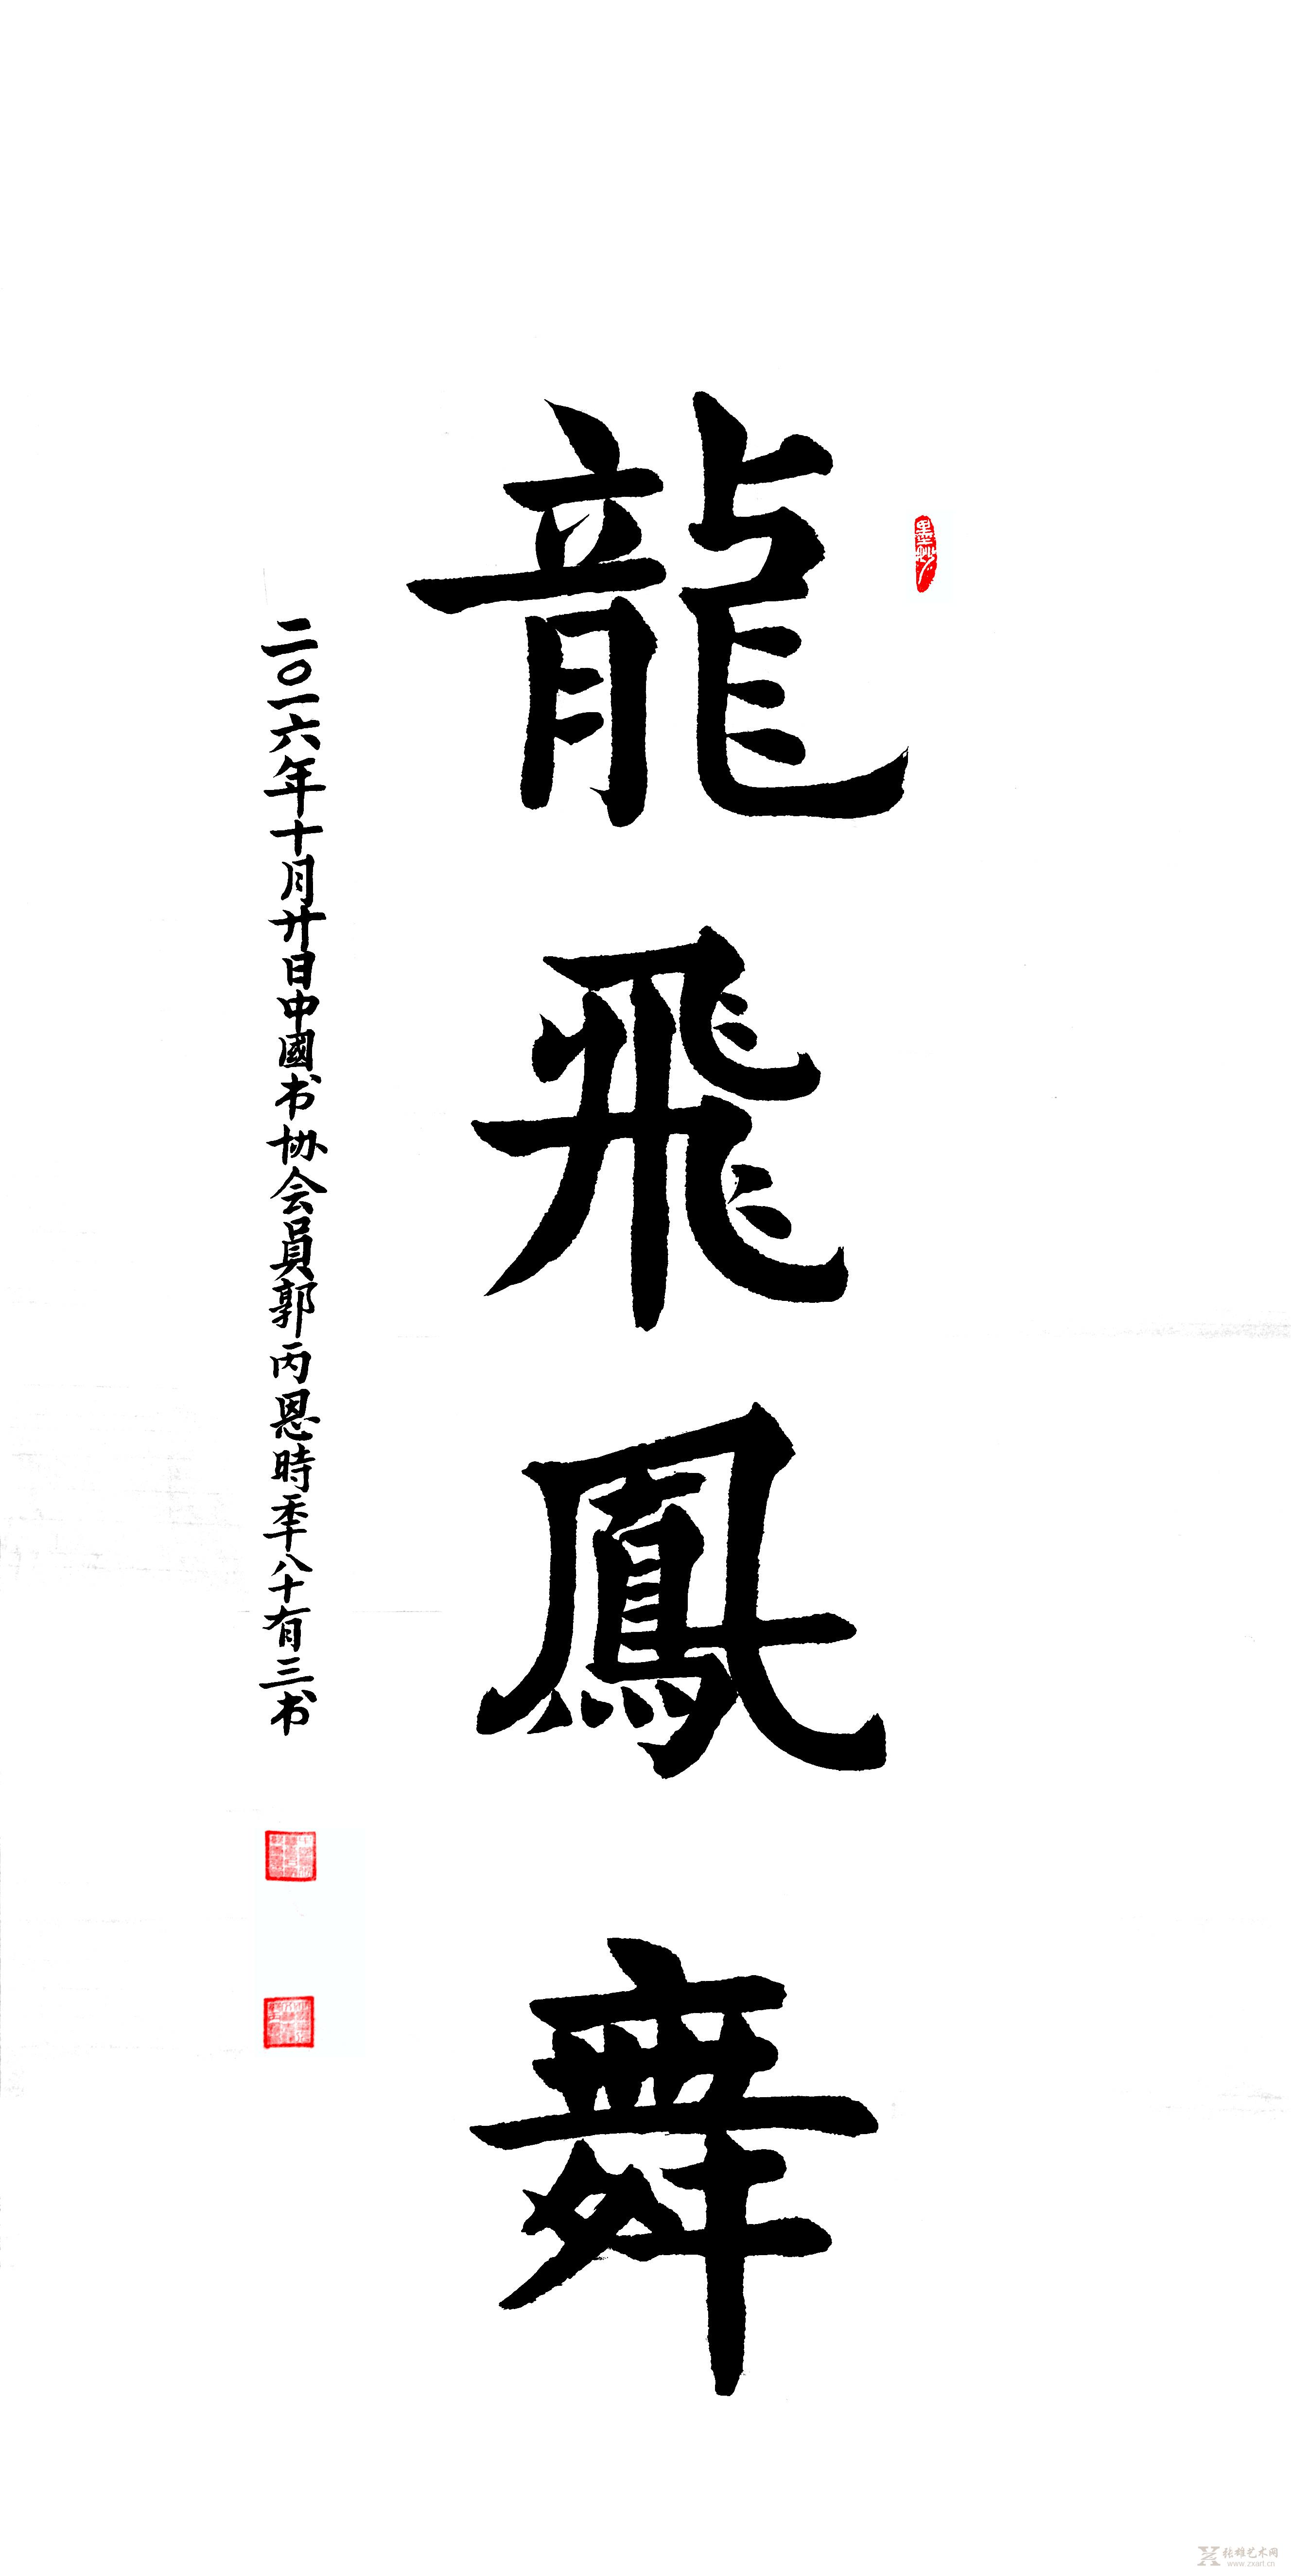 龍飛鳳舞
二〇一六年十月廿日中國书协会員郭丙恩時年八十有三书
墨妙
张雄艺术网
www.zxart.cn